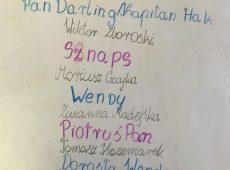 Pan Darling/Kapitan Hak
Wiktor Zborowski
Sznaps
Mariusz Czajka
Wendy
Zuzanna Madejska
Piotruś Pan
Tomasz Kaczmarek
Dorosła Wendy